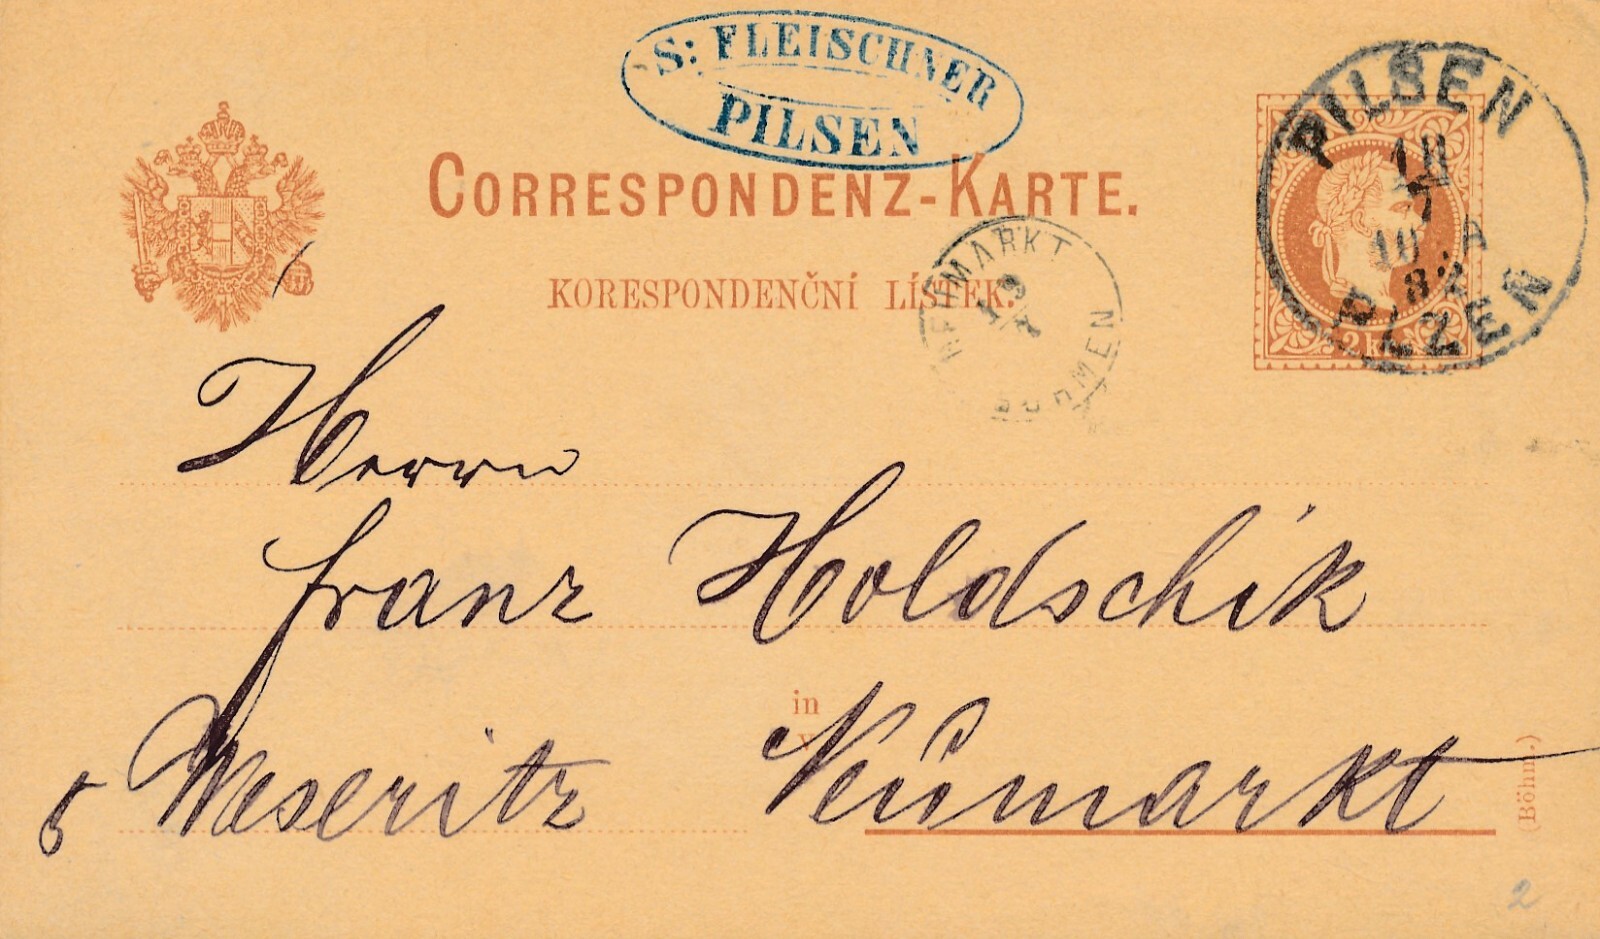 S: FLEISCHNER
PILSEN
CORRESPONDENZ-KARTE.
KORESPONDENČNÍ LÍSTEK.
PILSEN
18
7
10
PLZEN
2 kr
NEUMARKT
19
7
BÖHMEN
Herrn
Franz Holdschik
in
Weseritz Neumarkt
(Böhm.)
2